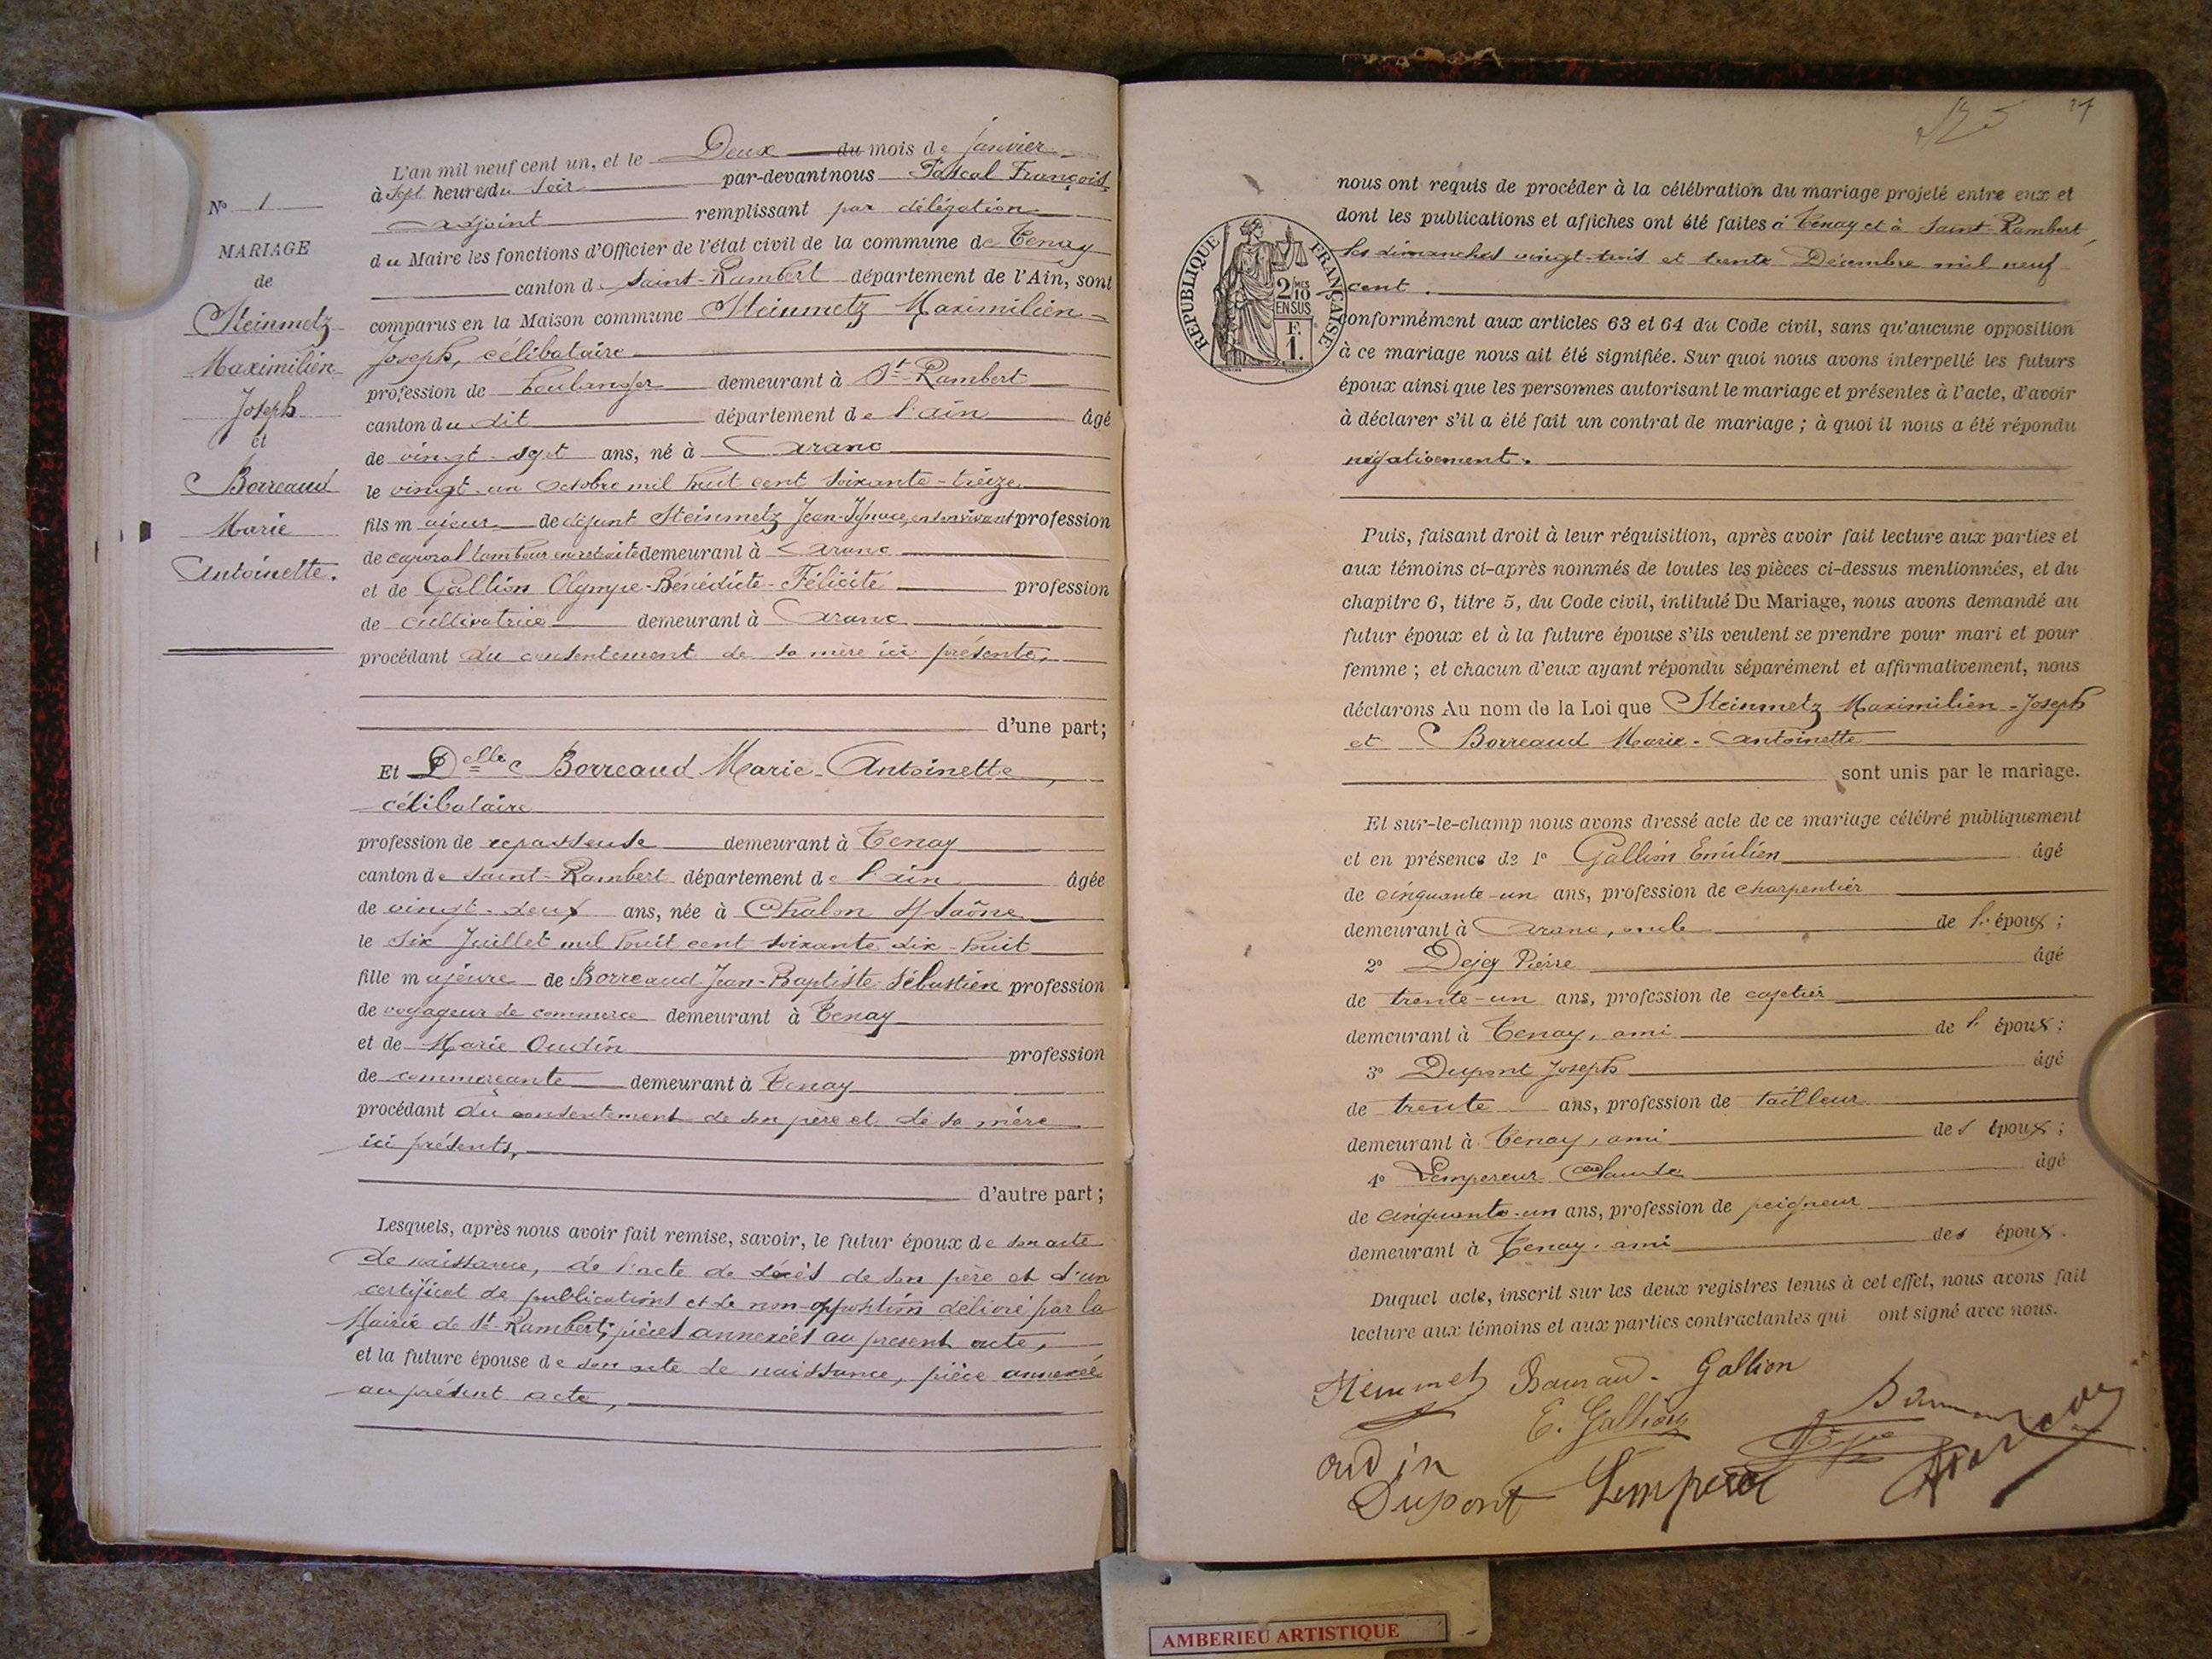 N° 1
MARIAGE
de
Steinmetz
Maximilien
Joseph
et
Borreaud
Marie
Antoinette.
L'an mil neuf cent un, et le Deux du mois de janvier
à sept heures du soir par-devant nous Pascal François
adjoint remplissant par délégation
du Maire les fonctions d'Officier de l'état civil de la commune de Tenay
canton de Saint-Rambert département de l'Ain, sont
comparus en la Maison commune Steinmetz Maximilien-
Joseph, célibataire
profession de boulanger demeurant à St-Rambert
canton du dit département de l'ain âgé
de vingt-sept ans, né à Aranc
le vingt-un Octobre mil huit cent soixante-treize
fils majeur de défunt Steinmetz Jean-Ignace, en son vivant profession
de caporal tambour en retraite demeurant à Aranc
et de Gallion Olympe-Bénédicte-Félicité profession
de cultivatrice demeurant à Aranc
procédant du consentement de sa mère ici présente,
d'une part;
Et Delle Borreaud Marie-Antoinette,
célibataire
profession de repasseuse demeurant à Tenay
canton de Saint-Rambert département de l'ain âgée
de vingt-deux ans, née à Chalon s/Saône
le six Juillet mil huit cent soixante dix-huit
fille majeure de Borreaud Jean-Baptiste Sébastien profession
de voyageur de commerce demeurant à Tenay
et de Marie Oudin profession
de commerçante demeurant à Tenay
procédant du consentement de son père et de sa mère
ici présents,
d'autre part;
Lesquels, après nous avoir fait remise, savoir, le futur époux de son acte
de naissance, de l'acte de décès de son père et d'un
certificat de publications et de non-opposition délivré par la
Mairie de St-Rambert, pièces annexées au présent acte,
et la future épouse de son acte de naissance, pièce annexée
au présent acte,
RÉPUBLIQUE FRANÇAISE
2 MES
10
EN SUS
F.
1.
nous ont requis de procéder à la célébration du mariage projeté entre eux et
dont les publications et affiches ont été faites à Tenay et à Saint-Rambert,
les dimanches vingt-trois et trente Décembre mil neuf
cent.
conformément aux articles 63 et 64 du Code civil, sans qu'aucune opposition
à ce mariage nous ait été signifiée. Sur quoi nous avons interpellé les futurs
époux ainsi que les personnes autorisant le mariage et présentes à l'acte, d'avoir
à déclarer s'il a été fait un contrat de mariage; à quoi il nous a été répondu
négativement.
Puis, faisant droit à leur réquisition, après avoir fait lecture aux parties et
aux témoins ci-après nommés de toutes les pièces ci-dessus mentionnées, et du
chapitre 6, titre 5, du Code civil, intitulé Du Mariage, nous avons demandé au
futur époux et à la future épouse s'ils veulent se prendre pour mari et pour
femme; et chacun d'eux ayant répondu séparément et affirmativement, nous
déclarons Au nom de la Loi que Steinmetz Maximilien-Joseph
et Borreaud Marie-Antoinette
sont unis par le mariage.
Et sur-le-champ nous avons dressé acte de ce mariage célébré publiquement
et en présence de 1° Gallion Emilien âgé
de cinquante-un ans, profession de charpentier
demeurant à Aranc, oncle de l'époux;
2° Dejey Pierre âgé
de trente-un ans, profession de cafetier
demeurant à Tenay, ami de l'époux;
3° Dupont Joseph âgé
de trente ans, profession de tailleur
demeurant à Tenay, ami des époux;
4° Lempereur Claude âgé
de cinquante-un ans, profession de peigneur
demeurant à Tenay, ami des époux.
Duquel acte, inscrit sur les deux registres tenus à cet effet, nous avons fait
lecture aux témoins et aux parties contractantes qui ont signé avec nous.
Gallion
E. Gallion
oudin
Dupont
AMBERIEU ARTISTIQUE